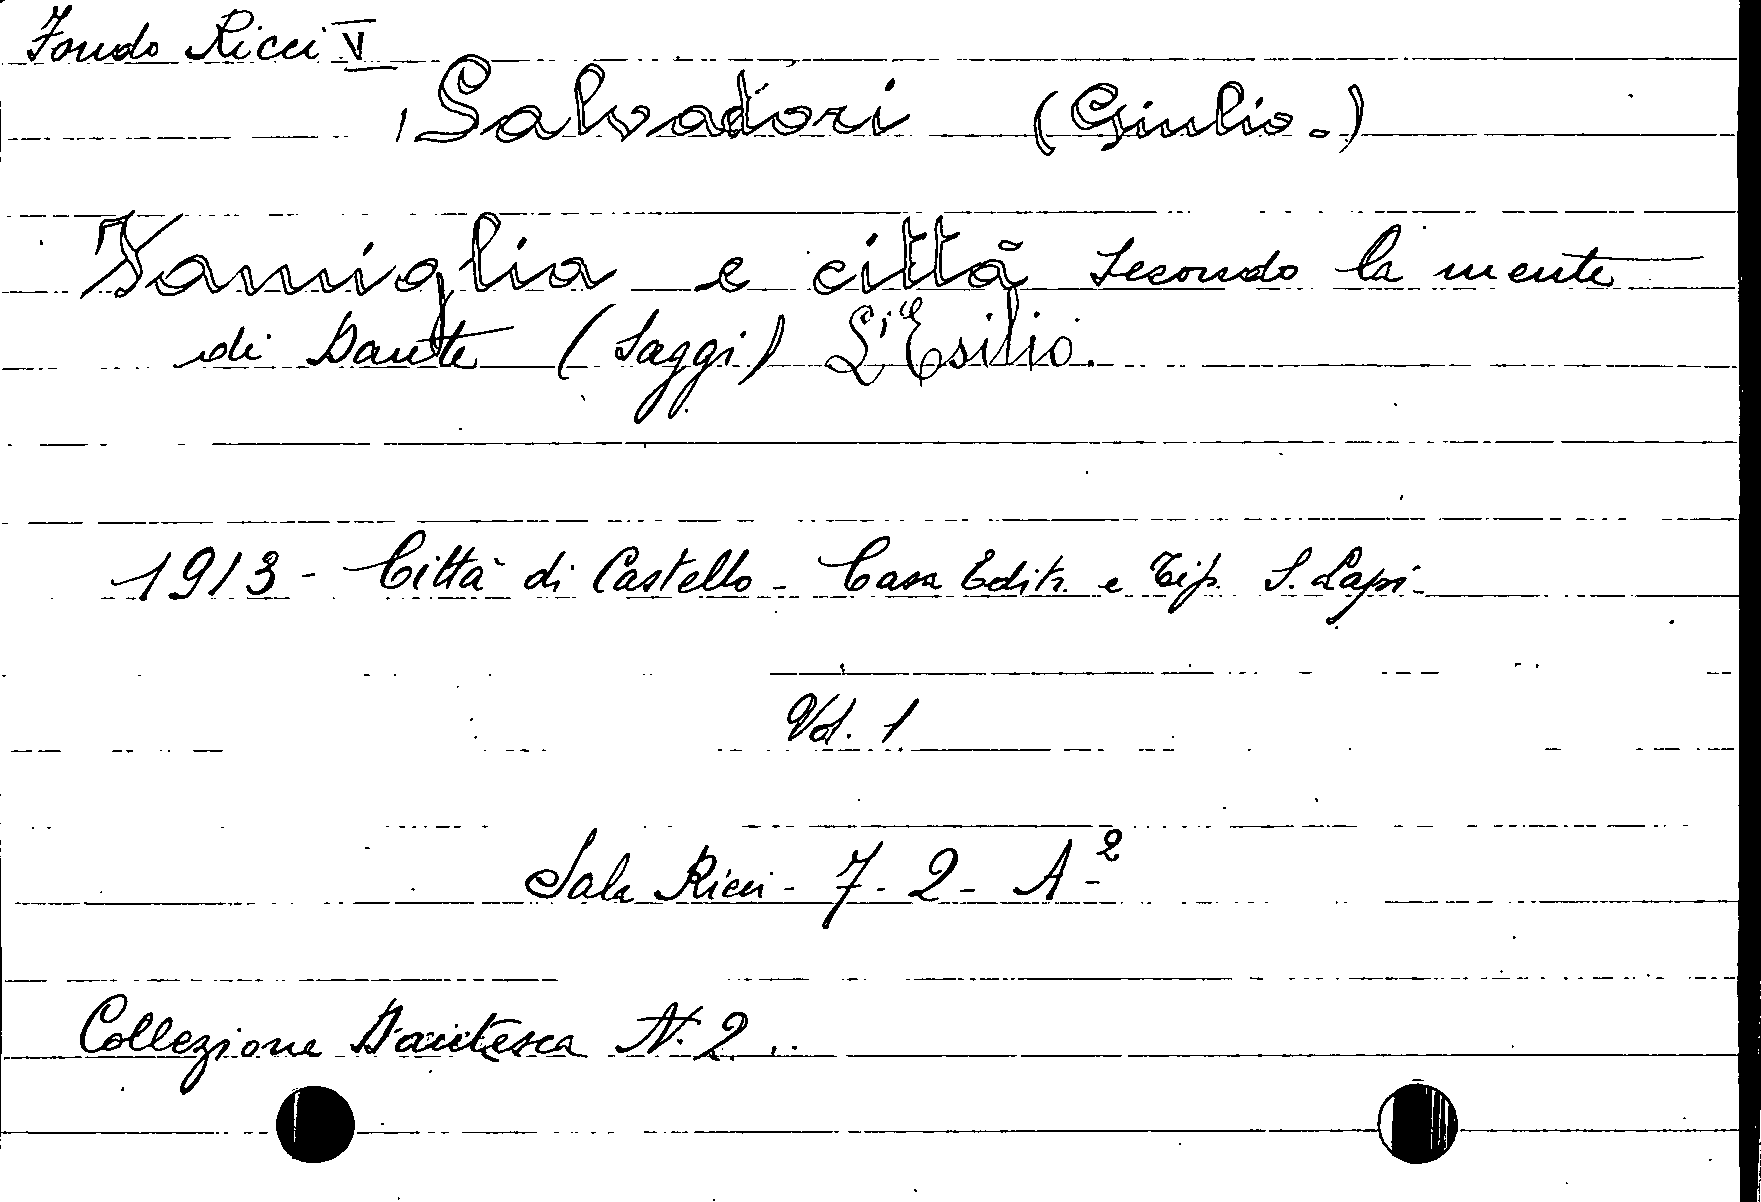 Fondo Ricci V
Salvadori (Giulio.)
Famiglia e città secondo la mente
di Dante (Saggi) L'Esilio.
1913 - Città di Castello - Casa Editr. e Tip. S. Lapi -
Vol. 1
Sala Ricci - 7 - 2 - A - 2
Collezione Dantesca N. 2.